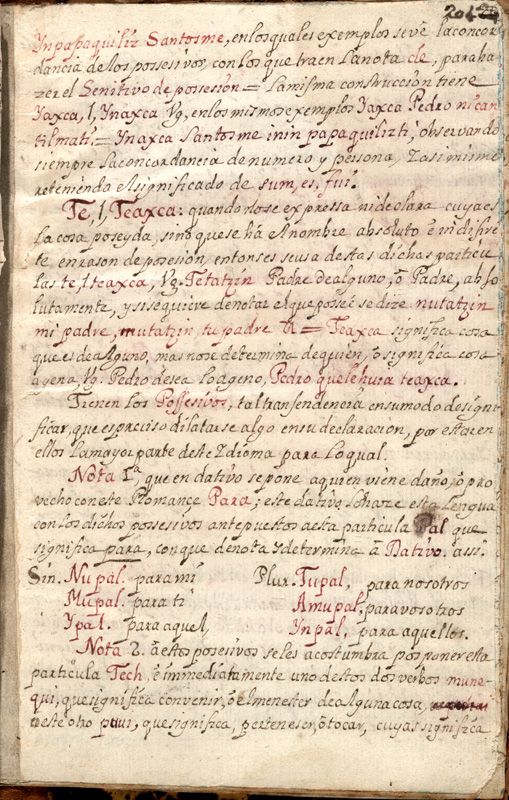 Ynpapaquiliz Santosme, enlosquales exemplos seve laconcor
dancia delos possesivos, con los que traen lanota de, paraha
zer el Genitivo de possesion = la misma construccion tiene
Yaxca, l, Ynaxca Vg, enlos mismos exemplos Yaxca Pedro nican
tilmatl. = Ynaxca Santosme inin papaquilizti, observando
siempre laconcordancia de numero y persona, Y asimismo
reteniendo el significado de sum, es, fui.
Te, l, Teaxca: quando nose expressa ni declara cuya es
la cosa poseyda, sino que se ha el nombre absoluto è indifiré
te, en rason de posesion, entonses se usa destas dichas particu
las te, l, teaxca, Vg. Tetatzin Padre de alguno, ò Padre, abso
lutamente, y si se quiere denotar el que posseé se dize nutatzin
mi padre, mutatzin, tu padre &. = Teaxca significa cosa
que es de alguno, mas no se determina de quien, ò significa cosa
agena, Vg. Pedro desea lo ageno, Pedro quelehuia teaxca.
Tienen los Possesivos, tal transendencia en su modo de signi
ficar, que es preciso dilatarse algo en su declaracion, por estar en
ellos la mayor parte deste Idioma para lo qual.
Nota 1ª, que en dativo se pone a quien viene daño, ò pro
vecho con este Romançe Para; este dativo lo haze esta lengua
con los dichos possesivos antepuestos a esta particula Pal que
significa para, con que denota y determina â Dativo. assi.
Sin. Nupal. para mi Plur. Tupal, para nosotros
Mupal. para ti Amupal, para vosotros
Ypal. para aquel, Ynpal, para aquellos.
Nota 2. â estos posesivos se les acostumbra posponer esta
particula Tech, è immediatamente uno destos dos verbos mune-
qui, que significa convenir, ò el menester de alguna cosa,
o este otro pu.ui, que significa, perteneser, ò tocar, cuya significa